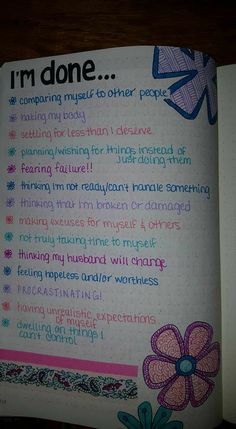 I'm done...
comparing myself to other people
hating my body
settling for less than I deserve
planning/wishing for things instead of
just doing them
fearing failure!!
thinking I'm not ready/can't handle something
thinking that I'm broken or damaged
making excuses for myself & others
not truly taking time to myself
thinking my husband will change
feeling hopeless and/or worthless
PROCRASTINATING!
having unrealistic expectations
of myself
dwelling on things I
can't control